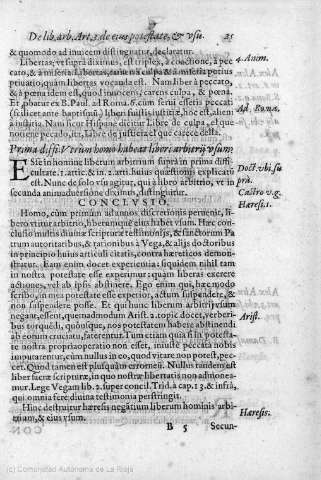 De lib. arb. Art. 3. de eius potestate, & vsu. 25
& quomodo ad inuicem distinguatur, declaratur.
Libertas, vt supra diximus, est triplex, à coactione, à pec
cato, & à miseria. Libertas, tamen à culpa & à miseria potius
priuatio, quàm libertas vocanda est. Nam & libera à pecca
to, idem est, quod innocens, carens culpa, & pœna.
Et probatur ex B. Paul. ad Roma. 6. cum serui essetis peccati
(scilicet ante baptismũ) liberi fuistis iustitiæ, hoc est, alieni
à iustitia. Nam sicut Hispanè dicitur Libre de culpa, est que
no tiene peccado, ita, Libre de justicia el que carece della.
4. Anim.
Ad Roma.
Prima diffi. Vtrum homo habeat liberi arbitrij vsum.
Esse in homine liberum arbitrium supra in prima diffi
cultate. 1. artic. & in. 2. arti. huius quæstionis explicatũ
est. Nunc de solo vsu agitur, qui à libero arbitrio, vt in
secunda animaduersione diximus, distinguitur.
Doct. vbi su
prà.
Castro v. g.
Hæresi. 1.
CONCLVSIO.
Homo, cùm primùm ad annos discretionis peruenit, li-
bero vtitur arbitrio, liberumque eius habet vsum. Hæc con-
clusio multis diuinæ scripturæ testimonijs, & sanctorum Pa
trum autoritatibus, & rationibus à Vega, & alijs doctoribus
in principio huius articuli citatis, contra hæreticos demon-
stratur. Eam enim docet experientia: siquidem nihil tam
in nostra potestate esse experimur: quàm liberas exercere
actiones, vel ab ipsis abstinere. Ego enim qui, hæc modo
scribo, in mea potestate esse experior, actum suspendere, &
non suspendere posse. Et qui hunc liberum arbitrij vsum
negant, essent, quemadmodum Arist. 1. topic. docet, verberi-
bus torquẽdi, quousque, nos potestatem habere abstinendi
ab eorum cruciatu, faterentur. Tum etiam quia si in potesta-
te nostra propria operatio non esset, iniustè peccata nobis
imputarentur, cùm nullus in eo, quod vitare non potest, pec-
cet. Quod tamen est plusquàm erroneũ. Nullus tandem est
liber sacræ scripturæ, in quo nostræ libertatis non admonea-
mur. Lege Vegam lib. 2. super concil. Trid. à cap. 12. & infrà,
qui omnia ferè diuina testimonia perstringit.
Arist.
Hinc destruitur hæresis negãtium liberum hominis arbi-
trium, & eius vsum.
Hæresis.
B 5 Secun-
(c) Comunidad Autónoma de La Rioja